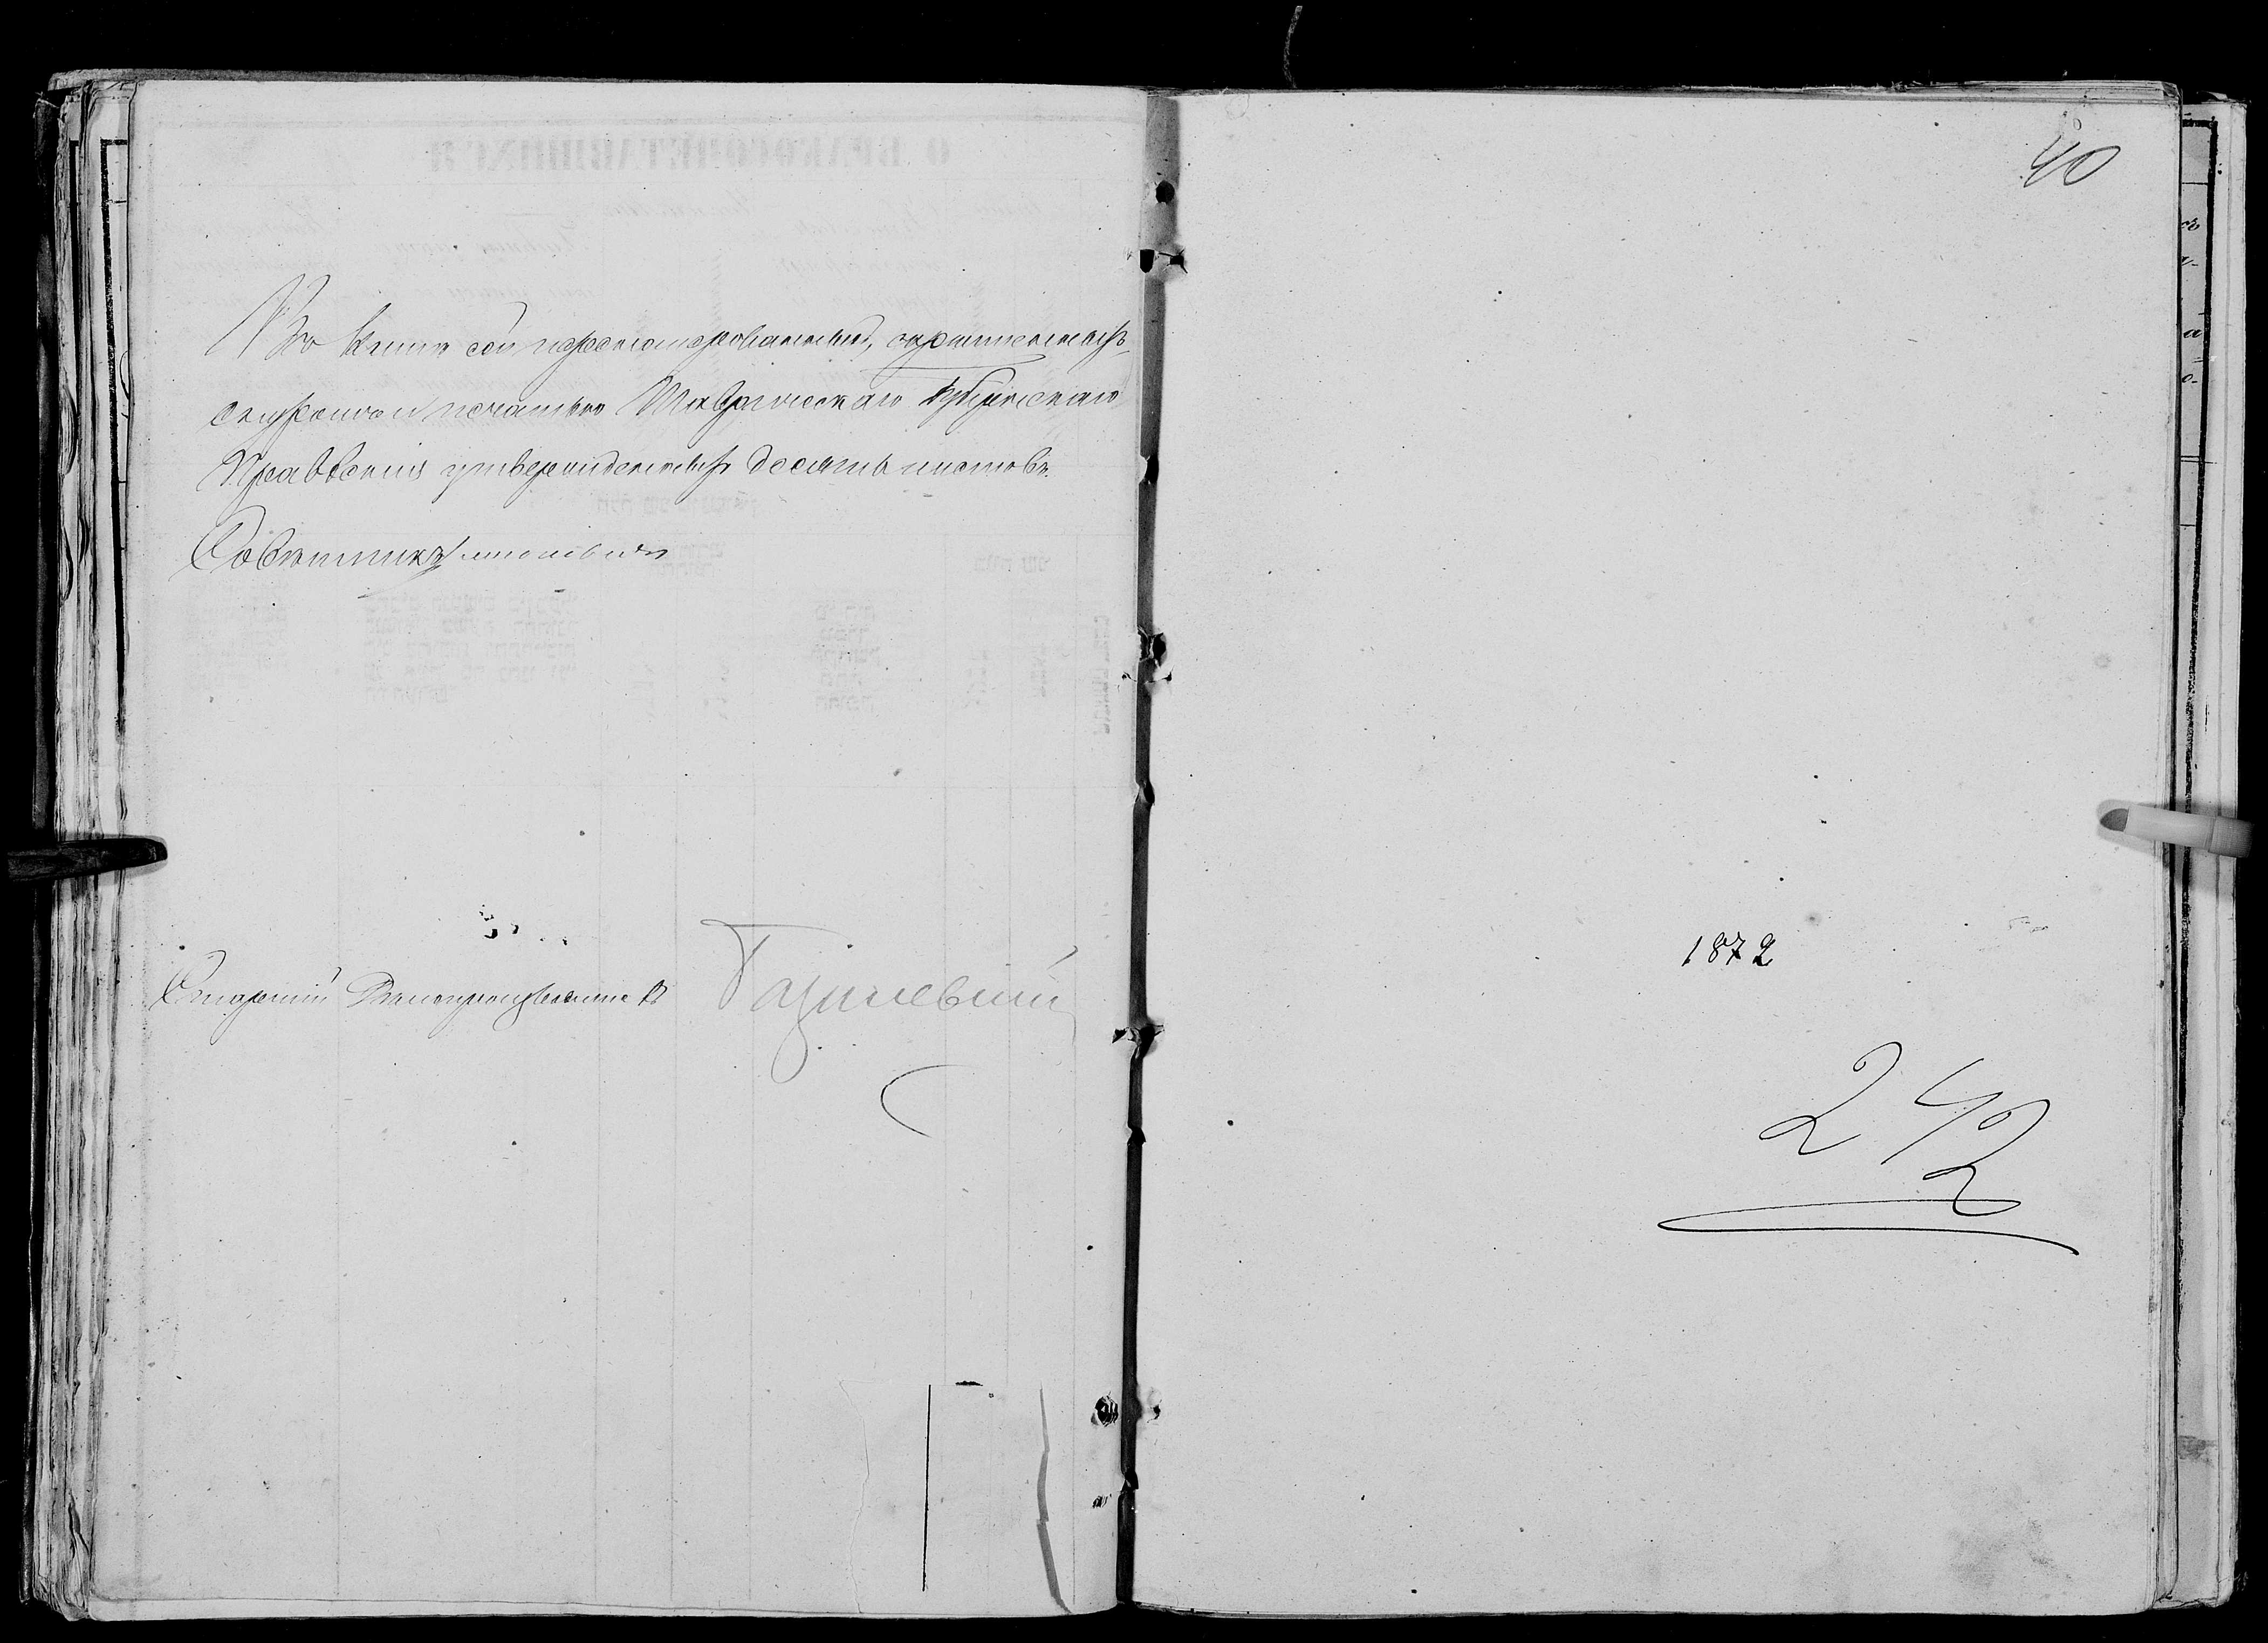 Въ книгѣ сей перенумерованныхъ, скрѣпленныхъ
шнуромъ и печатью Таврическаго Губернскаго
Правленія утвержденныхъ десять листовъ.
Совѣтникъ
Старшій Дѣлопроизводитель
40
1872
242